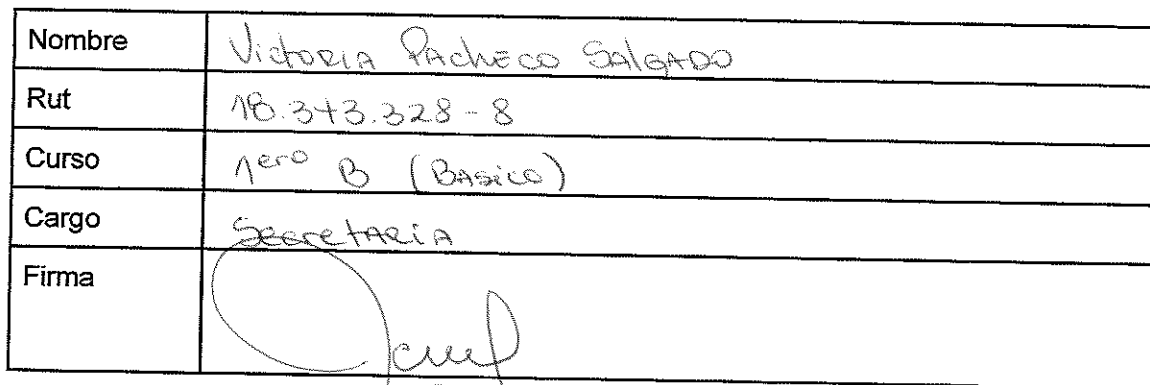 Nombre Victoria Pacheco Salgado
Rut 18.343.328-8
Curso 1ero B (Basico)
Cargo Secretaria
Firma